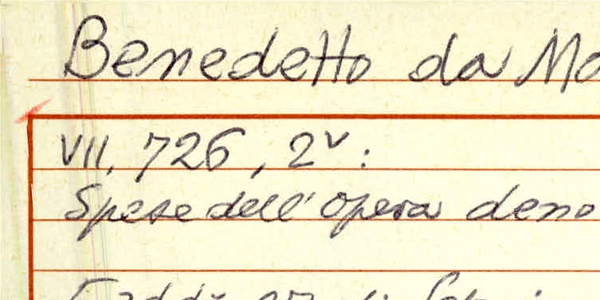 Benedetto da Ma
VII, 726, 2v:
Spese dell'opera deno